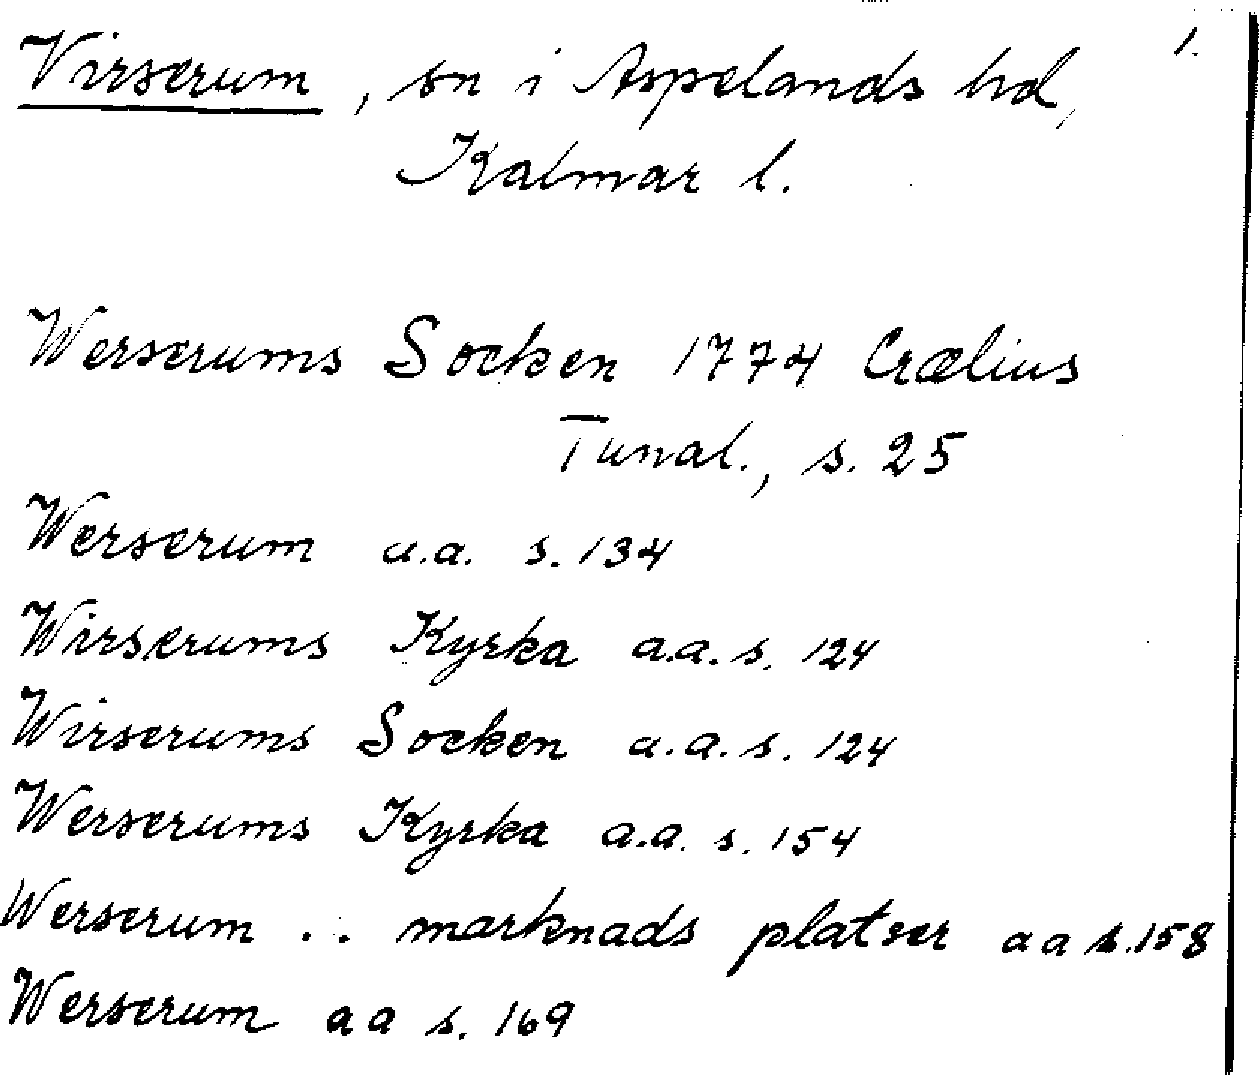 Virserum, sn i Aspelands hd, 1.
Kalmar l.
Werserums Socken 1774 Crælius
Tunal., s. 25
Werserum a.a. s. 134
Wirserums Kyrka a.a. s. 124
Wirserums Socken a.a. s. 124
Werserums Kyrka a.a. s. 154
Werserum .. marknads platser a a s. 158
Werserum a a s. 169